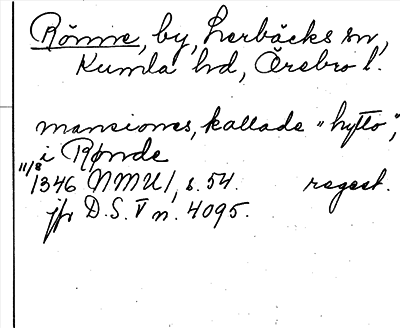 Rönne, by, Lerbäcks sn,
Kumla hd, Örebro l.
mansiones, kallade "hytto",
i Rønde
11/8 1346 NMU 1, s. 54. regest.
jfr D.S. V n. 4095.